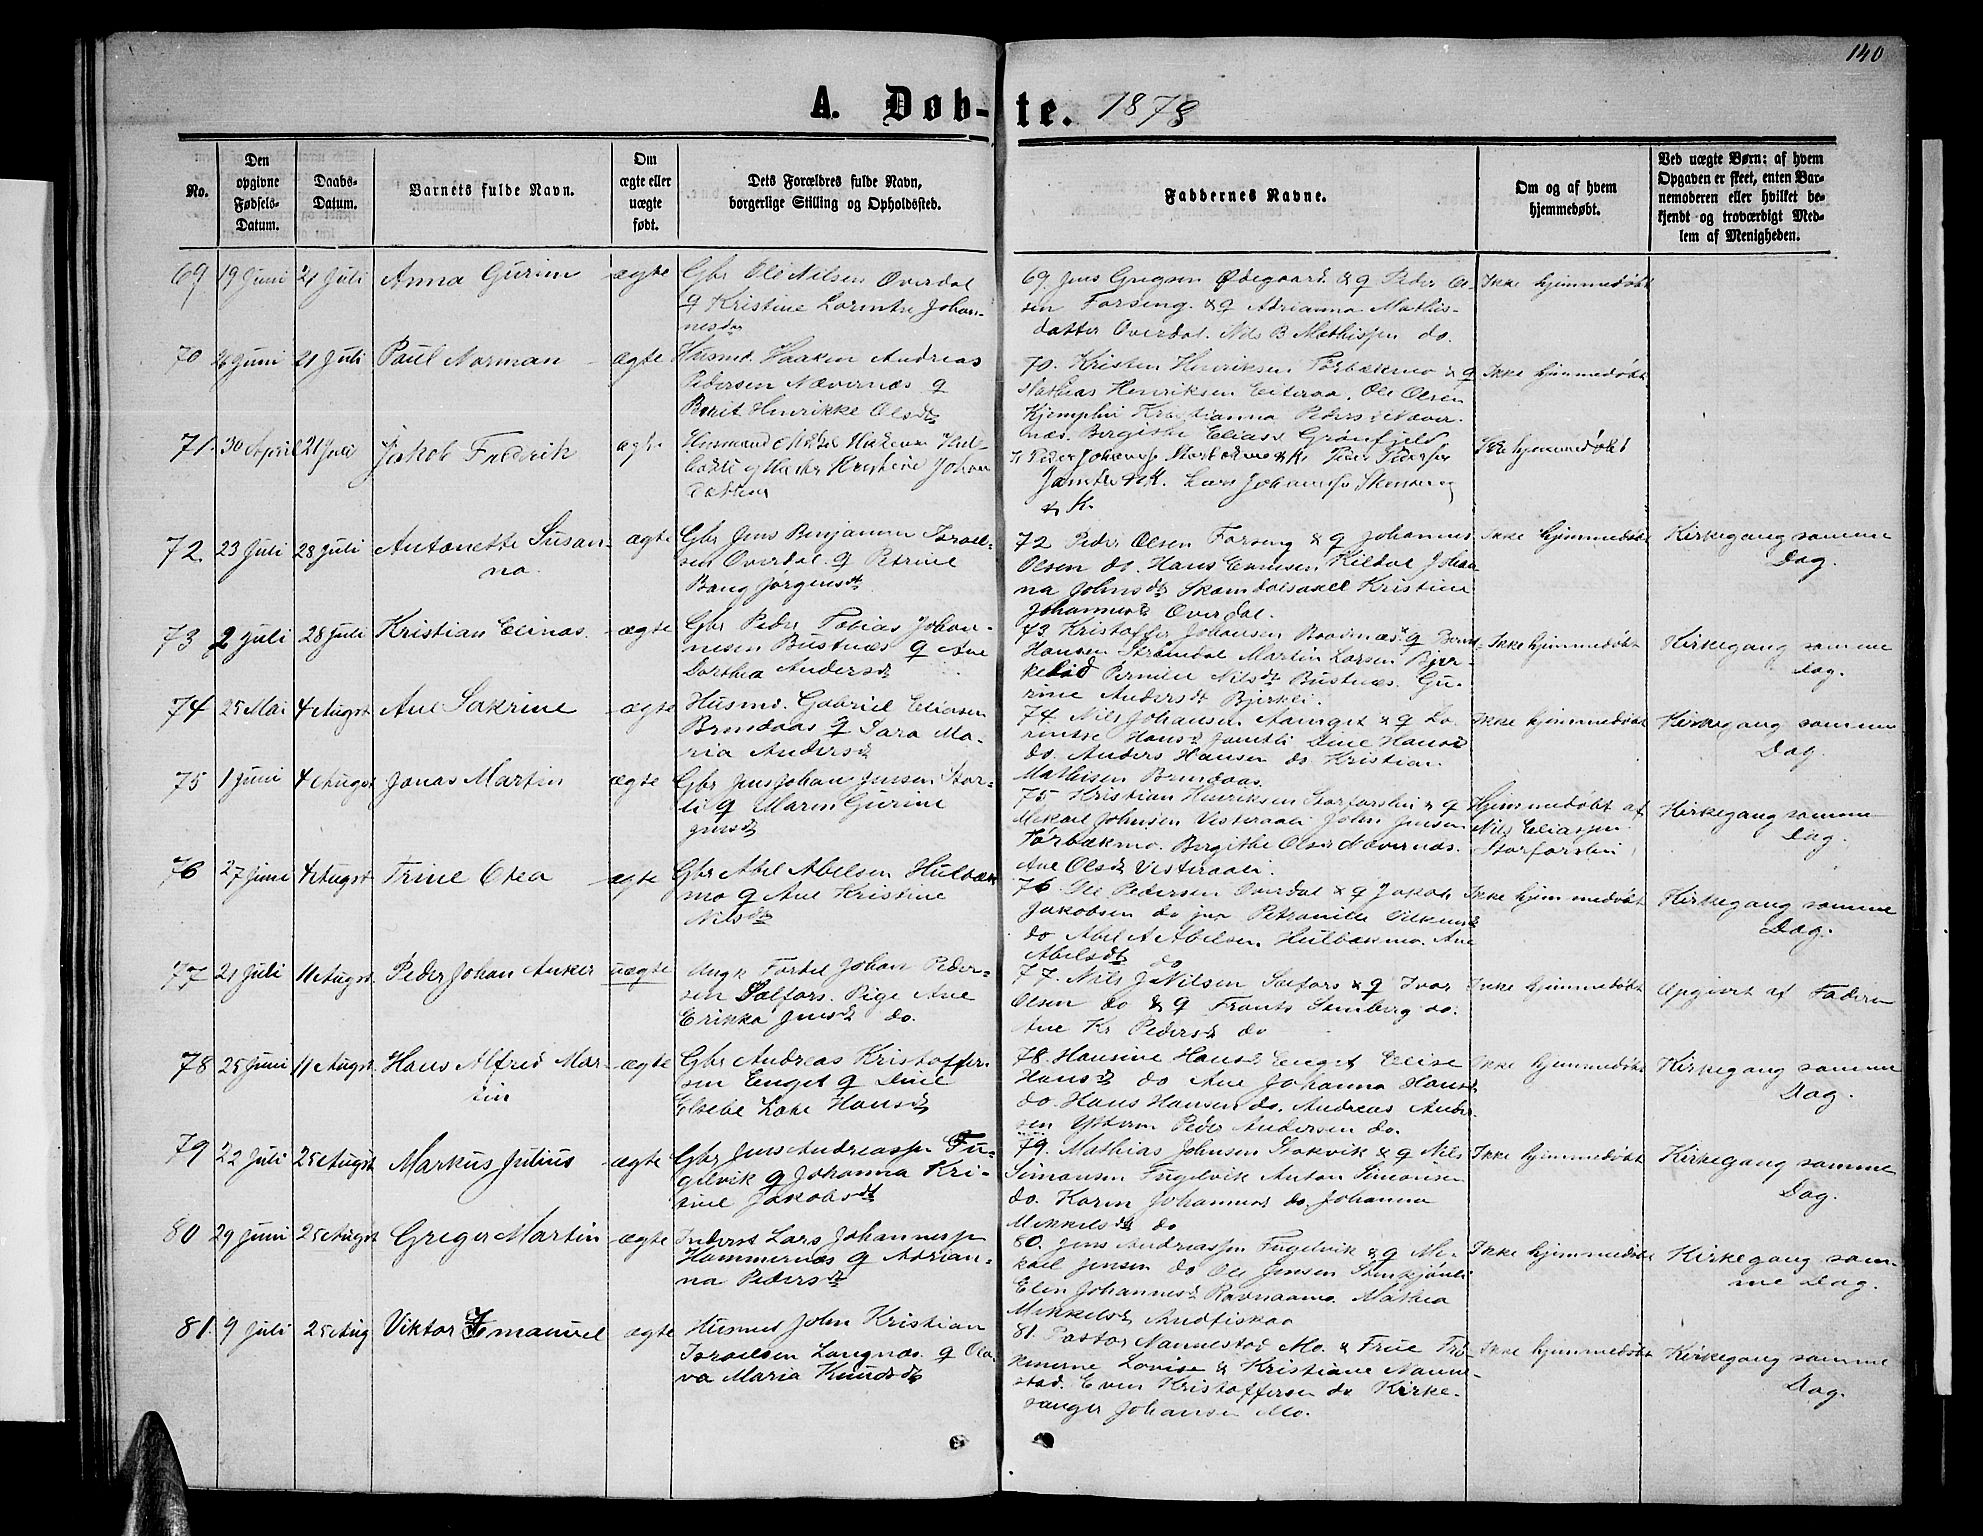 140
A. Døb-te. 1878
No.
Den opgivne Fødsels-Datum.
Daabs-Datum.
Barnets fulde Navn.
Om ægte eller uægte født.
Dets Forældres fulde Navn, borgerlige Stilling og Opholdssted.
Faddernes Navne.
Om og af hvem hjemmedøbt.
Ved uægte Børn: af hvem Opgaven er skeet, enten Barnemoderen eller hvilket bekjendt og troværdigt Medlem af Menigheden.
69 19 Juni 21 Juli Anna Gurine ægte Gbr Ole Nilsen Overdal
q Kristine Lorentse Johan-
nesdt
69. Jens Gregersen Ødegaard & q Peder Ol-
sen Forseng & q Adrianna Mathis-
datter Overdal. Nils B Mathissen do.
Ikke hjemmedøbt
70 26 Juni 21 Juli Paul Norman ægte Husmd. Haaken Andreas
Pedersen Nævernæs q
Berit Henrikke Olsdt
70. Kristen Henriksen Førbækmo & q
Mathias Henriksen Eiteraa. Ole Olsen
Kjemplii Kristianna Pedersd Næver-
næs. Bergithe Eliasd Grønfjeld
Ikke hjemmedøbt
71. 30 April 21 Juli Jakob Fredrik ægte Husmand
Kristine Johan
datter
Peder Johans. Peder Peders.
Lars Johanness.
& K.
Ikke hjemmedøbt
72. 23 Juli 28 Juli Antonette Susan-
na.
ægte Gbr Jens Benjamin Israel-
sen Overdal. q Petrine
Bang Jørgensdt
72 Peder Olsen Forseng & q Johannes
Olsen do. Hans Evensen Kildal Johan-
na Johnsdt Skamdalsaxel Kristine
Johannesd Overdal.
Ikke hjemmedøbt
Kirkegang samme
Dag.
73 2 Juli 28 Juli Kristian Elinas. ægte Gbr Peder Tobias Johan-
nesen Bustnæs q Ane
Dorthea Andersdt
73. Kristoffer Johansen Baadnæs q Bernt
Hansen Strømdal Martin Larsen Bjer-
kelid Pernille Nilsdt Bustnæs. Gu-
rine Andersdt Bjerkli.
Ikke hjemmedøbt
Kirkegang samme
Dag.
74 25 Mai 4 Augst Ane Sakrine ægte Husmd. Gabriel Eliasen
Brendaas q Sara Ma-
ria Andersdt
74. Nils Johansen Aanget & q Lo-
rentse Hansd Jamtli Dine Hansd
do. Anders Hansen do Kristian
Mathisen Brendaas.
Ikke hjemmedøbt
Kirkegang samme
Dag.
75 1 Juni 4 Augst Jonas Martin ægte Gbr Jens Johan Jensen Stor-
li q Maren Gurine
Jensdt
75 Kristian Henriksen Storforshei & q
Mikael Johnsen Vesteraali John Jensen
Førbækmo. Bergithe Olsd Nævernæs.
Ane Olsd Vesteraali.
Hjemmedøbt af
Nils Eliassen
Storforshei
Kirkegang samme
Dag.
76 27 Juni 4 Augst Trine Okea ægte Gbr Abel Abelsen Hulbæk
mo q Ane Kristine
Nilsdt
76 Ole Pedersen Overdal & q Jakob
Jakobsen do jun Petronille
do Abel A Abelsen Hulbækmo. Ane
Abelsdt do
Ikke hjemmedøbt
Kirkegang samme
Dag.
77 21 Juli 11 Augst. Peder Johan Anker uægte Ungk Fortel Johan Peder-
sen Selfors. Pige Ane
Erikka Jensd do.
77. Nils J Nilsen Selfors & q Ivar
Olsen do & q Frants Stenberg do.
Ane Kr Pedersd do
Ikke hjemmedøbt
Opgivet af Faderen
78 25 Juni 11 Augst. Hans Alfred Mar-
tin
ægte Gbr Andreas Kristoffer-
sen Enget q Dine
Elsebe Lake Hansdt
78. Hansine Hansd Enget Elise
Hansdt do Ane Johanna Hansd
do. Hans Hansen do. Andreas Ander-
sen Ytteren Peder Andersen do.
Ikke hjemmedøbt
Kirkegang samme
Dag.
79 22 Juli 25 Augst Markus Julius ægte Gbr Jens Andreassen Fu-
gelvik q Johanna Kri-
tine Jakobsdt
79. Mathias Johnsen Stokvik & q Nils
Simonsen Fugelvik Anton Simonsen
do. Karen Johannesd do. Johanna
Mikkelsdt do
Ikke hjemmedøbt
Kirkegang samme
Dag.
80 29 Juni 25 Augst Greger Martin ægte Inderst Lars Johannessen
Hammernæs q Adrian-
na Pedersdt
80. Jens Andreassen Fugelvik & q Mi-
kael Jensen do Ole Jensen Stenkjønli
Elen Johannesd Ravnaamo. Mathea
Mikkelsd Andfiskaa
Ikke hjemmedøbt
Kirkegang sam-
me Dag.
81. 9 Juli 25 Aug Viktor Imanuel ægte Husmd John Kristian
Israelsen Langnæs. q Ola-
va Maria Knudsdt
81. Pastor Nannestad Mo. & Frue Frø-
kenerne Lovise & Kristiane Nanne-
stad. Even Kristoffersen do Kirke-
sanger Johansen Mo.
Ikke hjemmedøbt
Kirkegang samme
Dag.